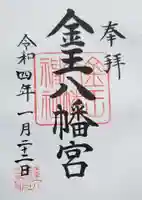 奉拝
金王八幡宮
令和四年一月二十二日